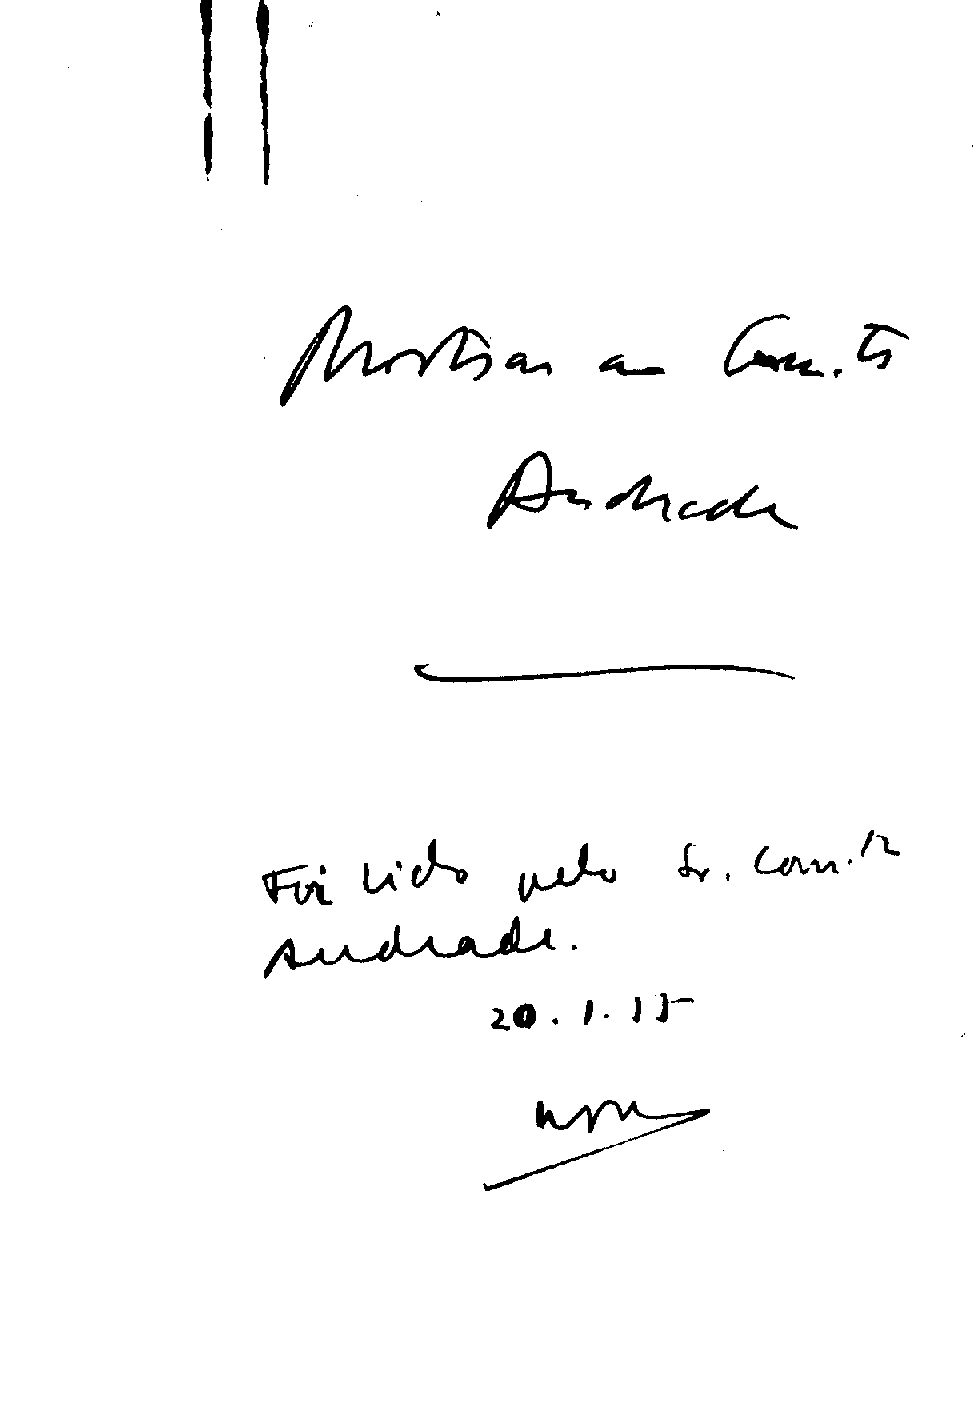 Mostrar ao Com.te
Andrade
Foi lido pelo Sr. Com.te
Andrade.
20.1.55